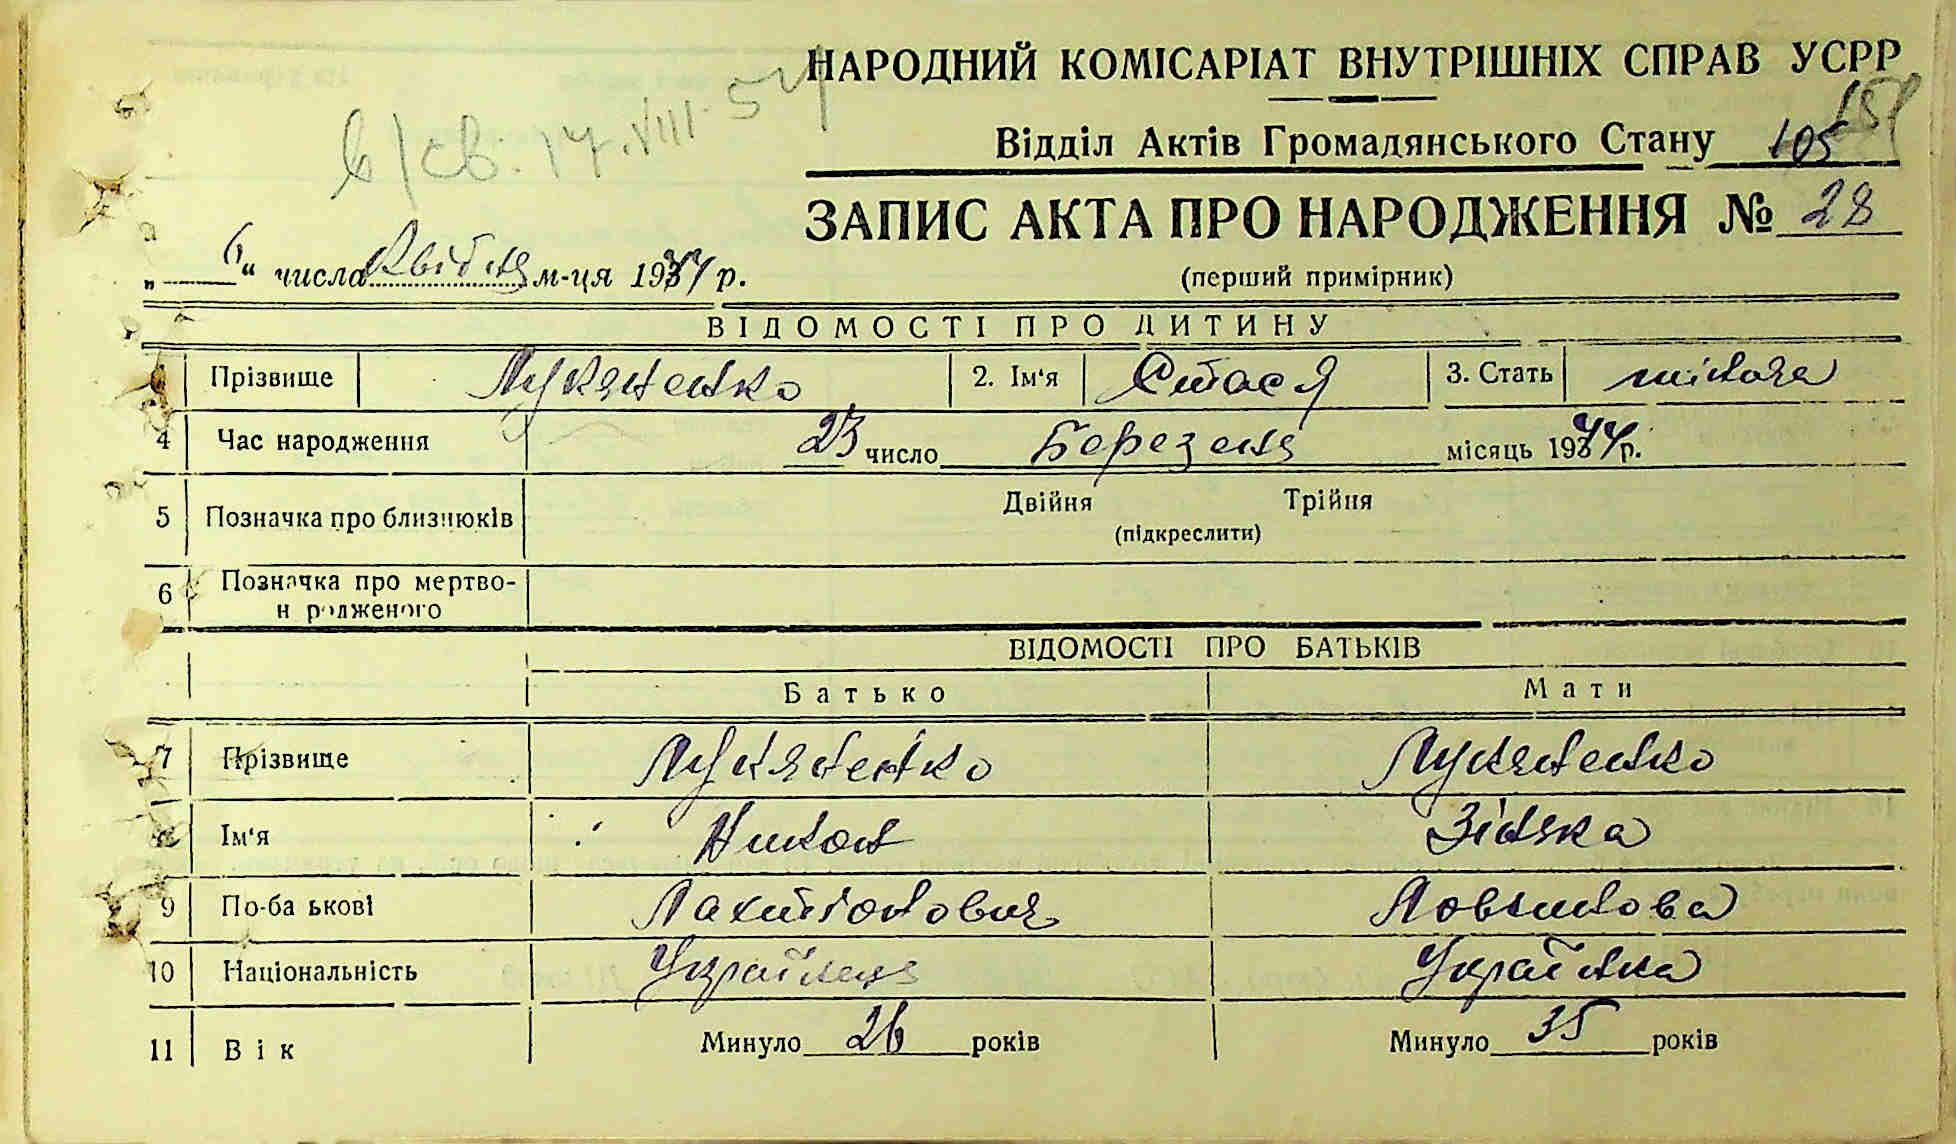 НАРОДНИЙ КОМІСАРІАТ ВНУТРІШНІХ СПРАВ УСРР
в/св. 17.VIII.54
Відділ Актів Громадянського Стану 105
ЗАПИС АКТА ПРО НАРОДЖЕННЯ № 28
„6“ числа Квітня м-ця 1944 р.
(перший примірник)
ВІДОМОСТІ ПРО ДИТИНУ
Прізвище Лукяненко 2. Ім‘я Стася 3. Стать жіноча
4 Час народження 23 число Березень місяць 1944 р.
5 Позначка про близнюків Двійня Трійня
(підкреслити)
6 Позначка про мертво-
н родженого
ВІДОМОСТІ ПРО БАТЬКІВ
Батько Мати
7 Прізвище Лукяненко Лукяненко
Ім‘я Никон Зінька
9 По-ба ькові Лахтіонович
10 Національність Українець Українка
11 Вік Минуло 26 років Минуло 35 років